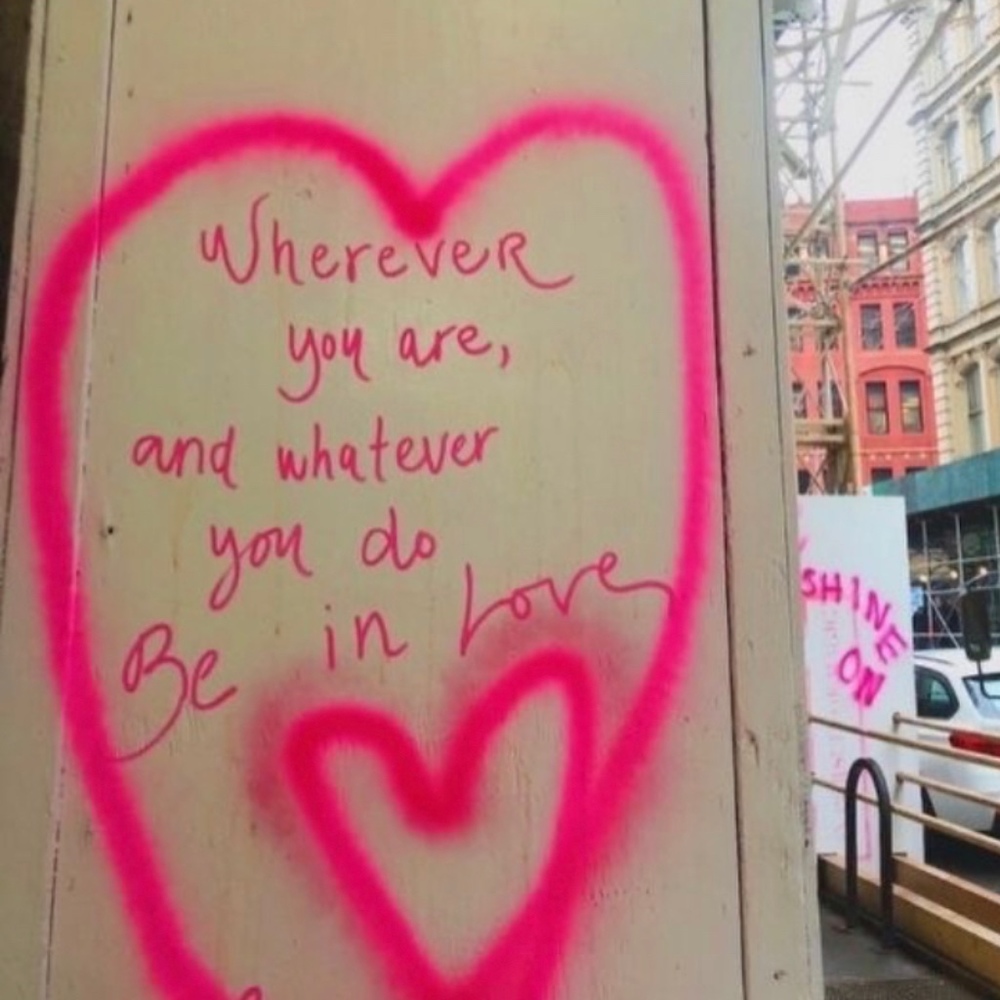 Wherever
you are,
and whatever
you do
Be in Love
SHINE
ON